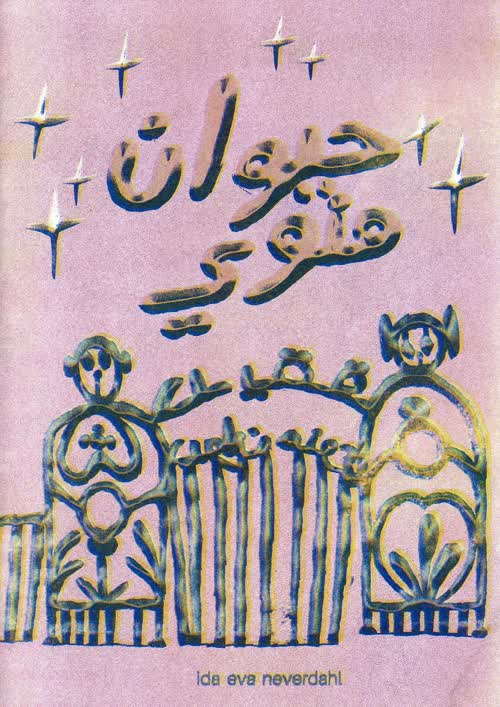 حيوان
منوي
ida eva neverdahl